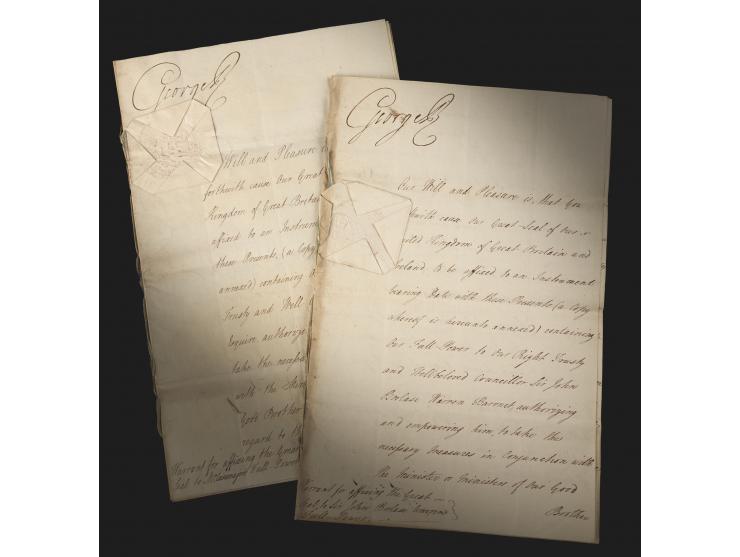 George R
Will and Pleasure
forthwith cause Our Great
Kingdom of Great Britain
affixed to an Instrum
these Presents, (a Copy
annexed) containing O
Trusty and Well
Esquire authorizing
take the necess
with the Minis
Good Brother
regard to th
Warrant for affixing the Great
Seal to Full Power
George R
Our Will and Pleasure is, that You
forthwith cause our Great Seal of our
United Kingdom of Great Britain and
Ireland to be affixed to an Instrument
bearing Date with these Presents (a Copy
whereof is hereunto annexed) containing
Our Full Power to Our Right Trusty
and Wellbeloved Councillor Sir John
Borlase Warren Baronet, authorizing
and empowering him, to take the
necessary Measures in Conjunction with
the Minister or Ministers of Our Good
Brother
Warrant for affixing the Great
Seal to Sir John Borlase Warren's
Full Power